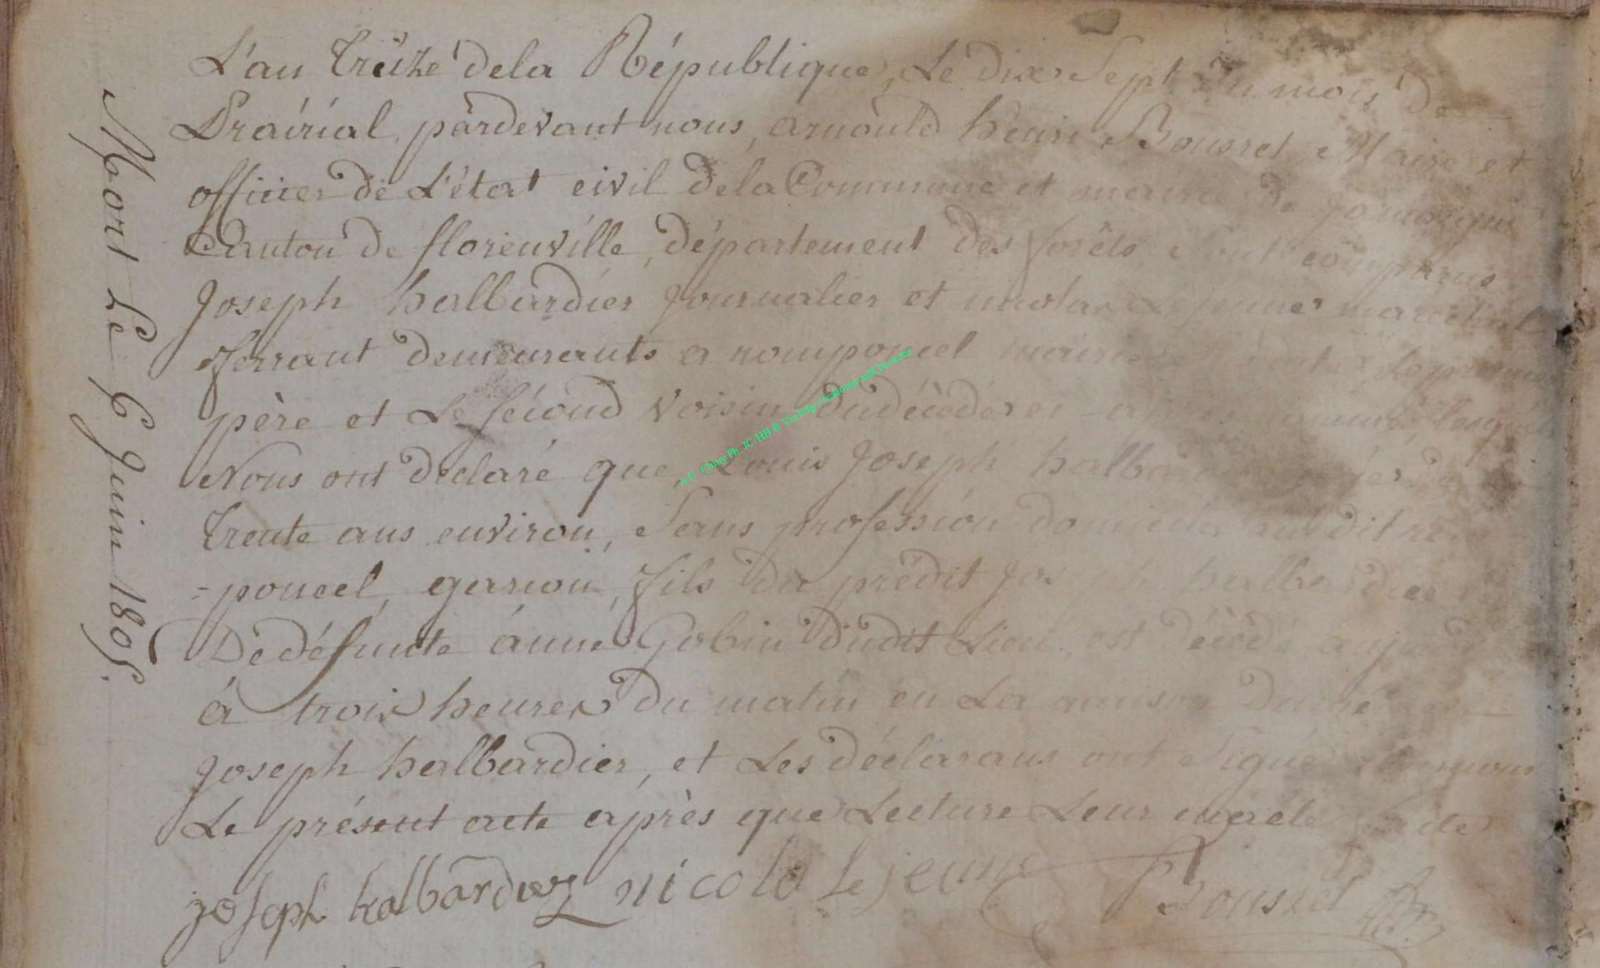 Mort Le 6 Juin 1805.
L'an treize dela République, Le dix Sept du mois de
Prairial pardevant nous, arnould henri Bousret Maire et
officier de L'état civil dela Commune et mairie de
Canton de florenville, département des forêts, Sont comparus
Joseph halbardier Journalier et nicolas Lejeune marechal
ferrant demeurants a rompoucel mairie
père et Le Second voisin du décédé et
Nous ont déclaré que Louis Joseph
trente ans environ, Sans profession domicilié audit
-poucel, garcon, fils du prédit Joseph halbardier
De défunte anne Gobin dudit Lieu, est décédé
à trois heures du matin en La maison
Joseph halbardier, et Les déclarans ont Signé
Le présent acte après que Lecture Leur en a été faite
joseph halbardier nicola Le jeune Bousret